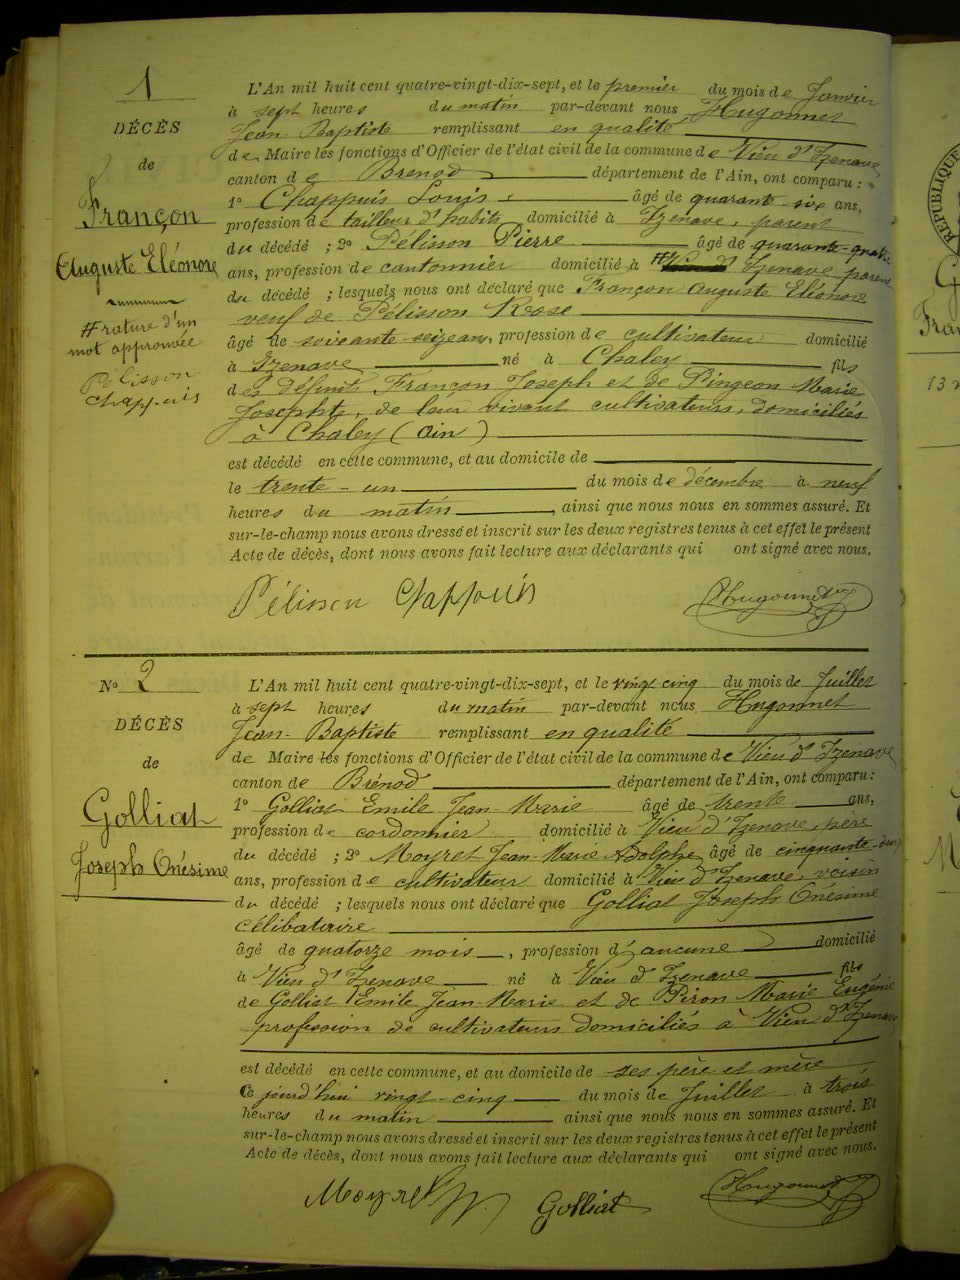 1
DÉCÈS
de
Françon
Auguste Eléonore
# rature d'un
mot approuvée
Pélisson
Chappuis
L'An mil huit cent quatre-vingt-dix-sept, et le premier du mois de Janvier
à sept heures du matin par-devant nous Hugonnet
Jean-Baptiste remplissant en qualité
de Maire les fonctions d'Officier de l'état civil de la commune de Vieu d'Izenave
canton de Brénod département de l'Ain, ont comparu :
1° Chappuis Louis âgé de quarante-six ans,
profession de tailleur d'habits domicilié à Izenave, parent
du décédé ; 2° Pélisson Pierre âgé de quarante-quatre
ans, profession de cantonnier domicilié à # Izenave parent
du décédé ; lesquels nous ont déclaré que Françon Auguste Eléonore
veuf de Pélisson Rose
âgé de soixante-seize ans, profession de cultivateur domicilié
à Izenave né à Chaley fils
des défunts Françon Joseph et de Pingeon Marie
Josephte, de leur vivant cultivateurs, domiciliés
à Chaley (Ain)
est décédé en cette commune, et au domicile de
le trente-un du mois de décembre à neuf
heures du matin, ainsi que nous nous en sommes assuré. Et
sur-le-champ nous avons dressé et inscrit sur les deux registres tenus à cet effet le présent
Acte de décès, dont nous avons fait lecture aux déclarants qui ont signé avec nous.
Pélisson Chappuis Hugonnet
N° 2
DÉCÈS
de
Golliat
Joseph Onésime
L'An mil huit cent quatre-vingt-dix-sept, et le vingt cinq du mois de Juillet
à sept heures du matin par-devant nous Hugonnet
Jean-Baptiste remplissant en qualité
de Maire les fonctions d'Officier de l'état civil de la commune de Vieu d'Izenave
canton de Brénod département de l'Ain, ont comparu :
1° Golliat Emile Jean-Marie âgé de trente ans,
profession de cordonnier domicilié à Vieu d'Izenave, père
du décédé ; 2° Moyret Jean-Marie Adolphe âgé de cinquante-deux
ans, profession de cultivateur domicilié à Vieu d'Izenave, voisin
du décédé ; lesquels nous ont déclaré que Golliat Joseph Onésime
célibataire
âgé de quatorze mois, profession d'aucune domicilié
à Vieu d'Izenave né à Vieu d'Izenave fils
de Golliat Emile Jean-Marie et de Piron Marie Eugénie
profession de cultivateurs domiciliés à Vieu d'Izenave
est décédé en cette commune, et au domicile de ses père et mère
Ce jourd'hui vingt-cinq du mois de Juillet à trois
heures du matin ainsi que nous nous en sommes assuré. Et
sur-le-champ nous avons dressé et inscrit sur les deux registres tenus à cet effet le présent
Acte de décès, dont nous avons fait lecture aux déclarants qui ont signé avec nous.
Moyret Golliat Hugonnet
RÉPUBLIQUE